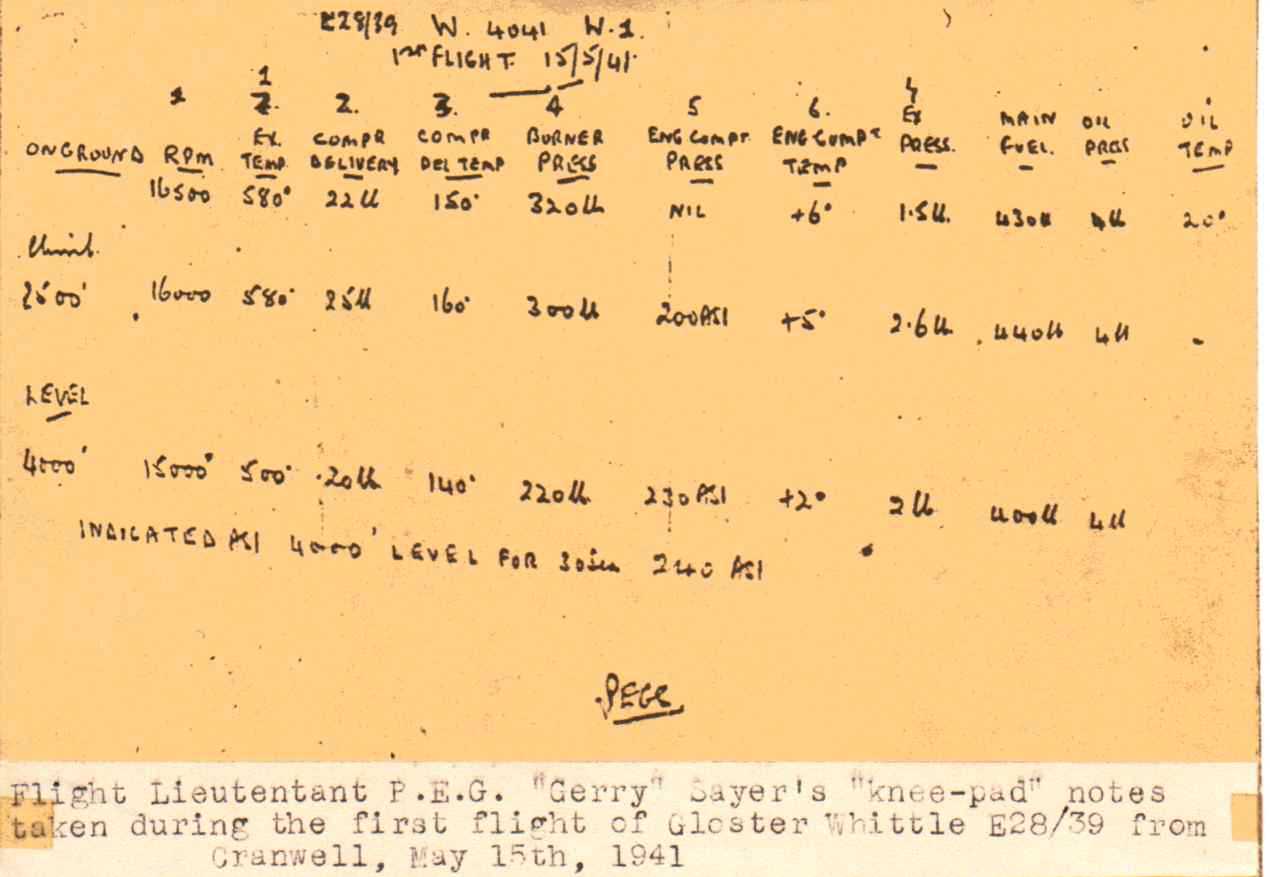 E28/39 W. 4041 W.1.
1st FLIGHT. 15/5/41.
1
1 2. 2. 3. 4 5 6. 4
ON GROUND RPM EX. TEMP. COMPR DELIVERY COMPR DEL TEMP BURNER PRESS ENG COMPT. PRESS ENG COMPT TEMP EX PRESS. MAIN FUEL. OIL PRESS OIL TEMP
16500 580° 22lb 150° 320lb NIL +6° 1.5lb. 430lb 4lb 20°
Climb.
2500' 16000 580° 25lb 160° 300lb 200ASI +5° 2.6lb 440lb 4lb -
LEVEL
4000' 15000 500° 20lb 140° 220lb 230ASI +2° 2lb 400lb 4lb
INDICATED ASI 4000' LEVEL FOR 30sec 240 ASI
PEGS
Flight Lieutentant P.E.G. "Gerry" Sayer's "knee-pad" notes
taken during the first flight of Gloster Whittle E28/39 from
Cranwell, May 15th, 1941